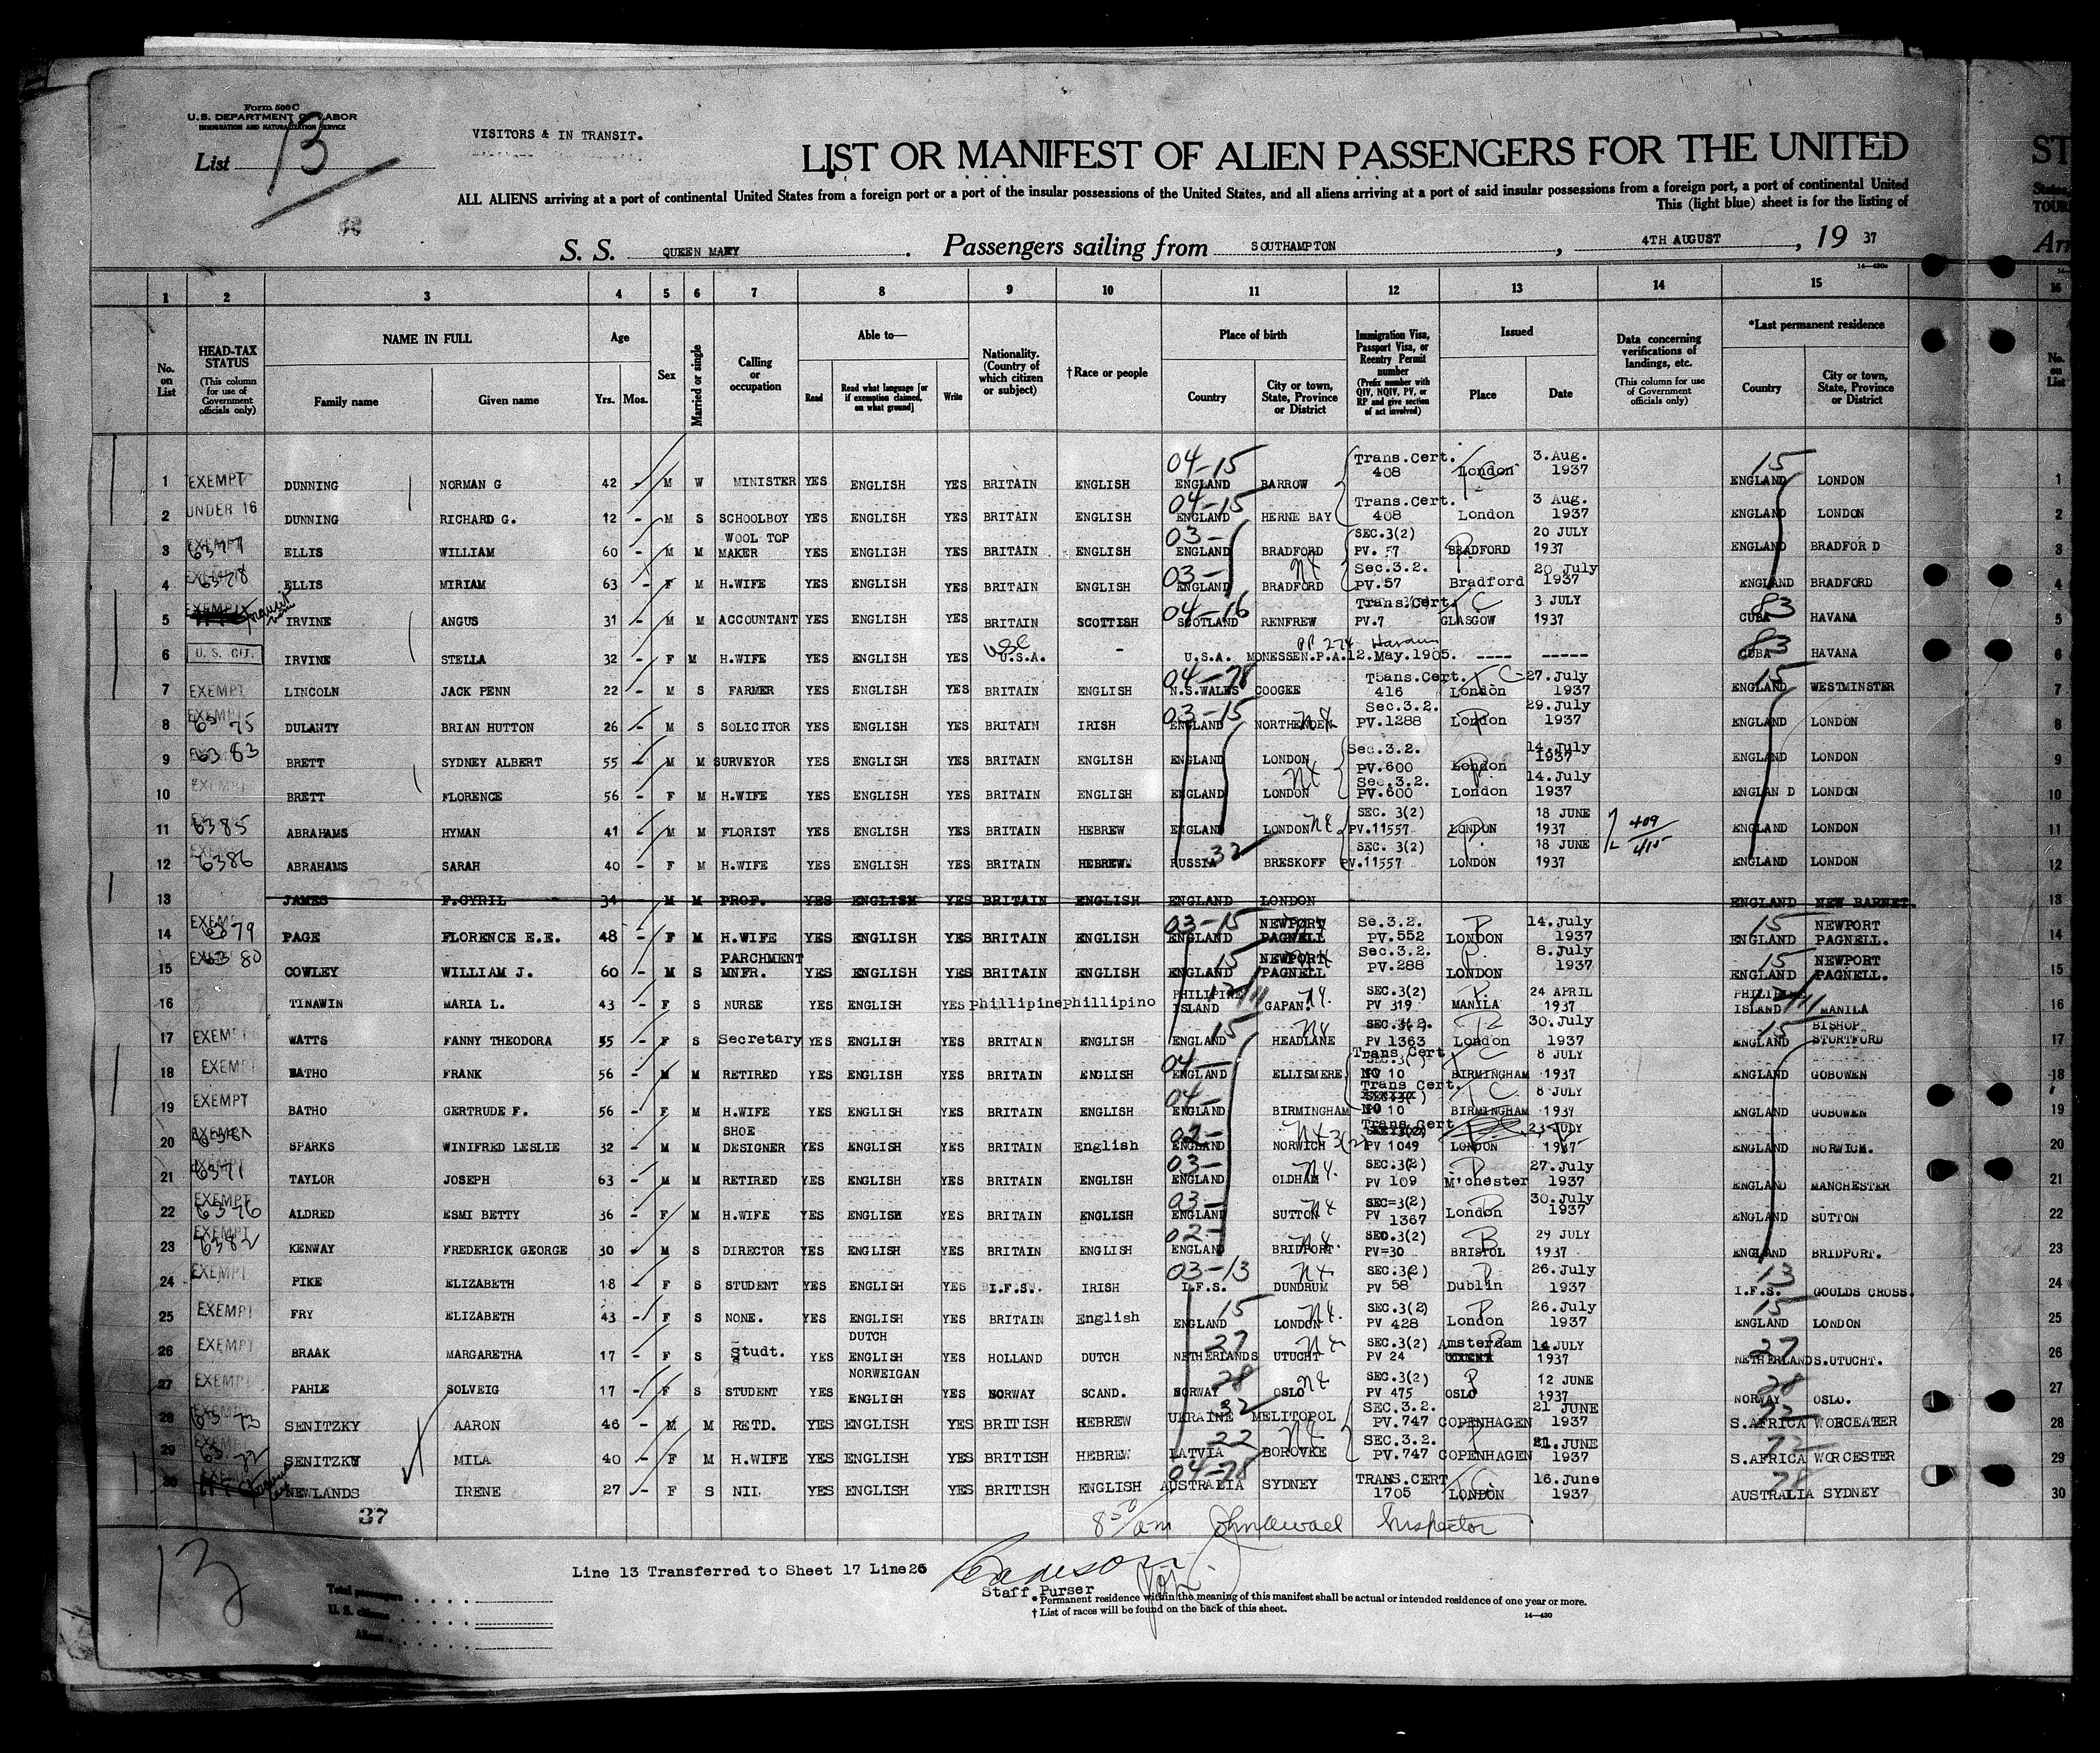 Form 500 C
U.S. DEPARTMENT OF LABOR
IMMIGRATION AND NATURALIZATION SERVICE
List 13
VISITORS & IN TRANSIT.
LIST OR MANIFEST OF ALIEN PASSENGERS FOR THE UNITED
ST
ALL ALIENS arriving at a port of continental United States from a foreign port or a port of the insular possessions of the United States, and all aliens arriving at a port of said insular possessions from a foreign port, a port of continental United
This (light blue) sheet is for the listing of
S. S. QUEEN MARY. Passengers sailing from SOUTHAMPTON, 4TH AUGUST, 19 37
1 2 3 4 5 6 7 8 9 10 11 12 13 14 15 16
No. on List
HEAD-TAX STATUS (This column for use of Government officials only)
NAME IN FULL
Family name Given name
Age Yrs. Mos.
Sex
Married or single
Calling or occupation
Able to— Read Read what language [or if exemption claimed, on what ground] Write
Nationality. (Country of which citizen or subject)
†Race or people
Place of birth Country City or town, State, Province or District
Immigration Visa, Passport Visa, or Reentry Permit number (Prefix number with QIV, NQIV, PV, or RP and give section of act involved)
Issued Place Date
Data concerning verifications of landings, etc. (This column for use of Government officials only)
*Last permanent residence Country City or town, State, Province or District
No. on List
1 EXEMPT DUNNING NORMAN G 42 - M W MINISTER YES ENGLISH YES BRITAIN ENGLISH 04-15 ENGLAND BARROW Trans.Cert. 408 London 3.Aug. 1937 15 ENGLAND LONDON 1
2 UNDER 16 DUNNING RICHARD G. 12 - M S SCHOOLBOY YES ENGLISH YES BRITAIN ENGLISH 04-15 ENGLAND HERNE BAY Trans.Cert. 408 London 3 Aug. 1937 ENGLAND LONDON 2
3 EXEMPT 6377 ELLIS WILLIAM 60 - M M WOOL TOP MAKER YES ENGLISH YES BRITAIN ENGLISH 03- ENGLAND BRADFORD SEC.3(2) PV. 57 BRADFORD 20 JULY 1937 ENGLAND BRADFOR D 3
4 EXEMPT 6378 ELLIS MIRIAM 63 - F M H.WIFE YES ENGLISH YES BRITAIN ENGLISH 03- ENGLAND BRADFORD Sec.3.2. PV.57 Bradford 20 July 1937 ENGLAND BRADFORD 4
5 EXEMPT Transit IRVINE ANGUS 31 - M M ACCOUNTANT YES ENGLISH YES BRITAIN SCOTTISH 04-16 SCOTLAND RENFREW Trans.Cert. PV.7 GLASGOW 3 JULY 1937 83 CUBA HAVANA 5
6 U. S. CIT. IRVINE STELLA 32 - F M H.WIFE YES ENGLISH YES USC U.S.A. - U.S.A. MONESSEN.P.A. 12.May.1905. ---- ----- 83 CUBA HAVANA 6
7 EXEMPT LINCOLN JACK PENN 22 - M S FARMER YES ENGLISH YES BRITAIN ENGLISH 04-78 N.S.WALES COOGEE Trans.Cert. 416 London 27.July 1937 15 ENGLAND WESTMINSTER 7
8 EXEMPT 6375 DULANTY BRIAN HUTTON 26 - M S SOLICITOR YES ENGLISH YES BRITAIN IRISH 03-15 ENGLAND NORTHENDEN Sec.3.2. PV.1288 London 29.July 1937 ENGLAND LONDON 8
9 6383 BRETT SYDNEY ALBERT 55 - M M SURVEYOR YES ENGLISH YES BRITAIN ENGLISH ENGLAND LONDON Sec.3.2. PV.600 London 14.July 1937 ENGLAND LONDON 9
10 EXEMPT BRETT FLORENCE 56 - F M H.WIFE YES ENGLISH YES BRITAIN ENGLISH ENGLAND LONDON Sec.3.2. PV.600 London 14.July 1937 ENGLAN D LONDON 10
11 6385 ABRAHAMS HYMAN 41 - M M FLORIST YES ENGLISH YES BRITAIN HEBREW ENGLAND LONDON SEC. 3(2) PV.11557 LONDON 18 JUNE 1937 409 415 ENGLAND LONDON 11
12 6386 ABRAHAMS SARAH 40 - F M H.WIFE YES ENGLISH YES BRITAIN HEBREW. RUSSIA 32 BRESKOFF SEC. 3(2) PV.11557 LONDON 18 JUNE 1937 ENGLAND LONDON 12
13 JAMES F.CYRIL 34 M M PROF. YES ENGLISH YES BRITAIN ENGLISH ENGLAND LONDON ENGLAND NEW BARNET. 13
14 EXEMPT 6379 PAGE FLORENCE E.E. 48 - F M H.WIFE YES ENGLISH YES BRITAIN ENGLISH 03-15 ENGLAND NEWPORT PAGNELL Se.3.2. PV.552 LONDON 14.July 1937 15 ENGLAND NEWPORT PAGNELL. 14
15 EXEMPT 6380 COWLEY WILLIAM J. 60 - M S PARCHMENT MNFR. YES ENGLISH YES BRITAIN ENGLISH 15 ENGLAND NEWPORT PAGNELL Sec.3.2. PV.288 LONDON 8.July 1937 15 ENGLAND NEWPORT PAGNELL. 15
16 TINAWIN MARIA L. 43 - F S NURSE YES ENGLISH YES phillipine phillipino PHILIPINE ISLAND GAPAN. SEC.3(2) PV 319 MANILA 24 APRIL 1937 PHILIPINE ISLAND MANILA 16
17 EXEMPT WATTS FANNY THEODORA 55 - F S Secretary YES ENGLISH YES BRITAIN ENGLISH 15 ENGLAND HEADLANE SEC.3(2). PV 1363 London 30.July 1937 15 ENGLAND BISHOP STORTFORD 17
18 EXEMPT BATHO FRANK 56 - M M RETIRED YES ENGLISH YES BRITAIN ENGLISH 04- ENGLAND ELLISMERE Trans Cert NO 10 BIRMINGHAM 8 JULY 1937 ENGLAND GOBOWEN 18
19 EXEMPT BATHO GERTRUDE F. 56 - F M H.WIFE YES ENGLISH YES BRITAIN ENGLISH 04- ENGLAND BIRMINGHAM Trans Cert. NO 10 BIRMINGHAM 8 JULY 1937 ENGLAND GOBOWEN 19
20 EXEMPT SPARKS WINIFRED LESLIE 32 - M M SHOE DESIGNER YES ENGLISH YES BRITAIN English 02- ENGLAND NORWICH 3(2) Trans Cert PV 1049 LONDON 23 JULY 1937 ENGLAND NORWICH. 20
21 EXEMPT 6371 TAYLOR JOSEPH 63 - M M RETIRED YES ENGLISH YES BRITAIN ENGLISH 03- ENGLAND OLDHAM SEC.3(2) PV 109 M'chester 27.July 1937 ENGLAND MANCHESTER 21
22 EXEMPT 6376 ALDRED ESMI BETTY 36 - F M H.WIFE YES ENGLISH YES BRITAIN ENGLISH 03- ENGLAND SUTTON SEC=3(2) PV 1367 London 30.July 1937 ENGLAND SUTTON 22
23 EXEMPT 6382 KENWAY FREDERICK GEORGE 30 - M S DIRECTOR YES ENGLISH YES BRITAIN ENGLISH 02- ENGLAND BRIDPORT. SEC.3(2) PV=30 BRISTOL 29 JULY 1937 ENGLAND BRIDPORT. 23
24 EXEMPT PIKE ELIZABETH 18 - F S STUDENT YES ENGLISH YES I.F.S. IRISH 03-13 I.F.S. DUNDRUM SEC.3(2) PV 58 Dublin 26.July 1937 13 I.F.S. GOOLDS CROSS. 24
25 EXEMPT FRY ELIZABETH 43 - F S NONE. YES ENGLISH YES BRITAIN English 15 ENGLAND LONDON SEC.3(2) PV 428 London 26.July 1937 15 ENGLAND LONDON 25
26 EXEMPT BRAAK MARGARETHA 17 - F S Studt. YES DUTCH ENGLISH YES HOLLAND DUTCH 27 NETHERLANDS UTUCHT SEC.3(2) PV 24 Amsterdam 14.JULY 1937 27 NETHERLANDS.UTUCHT. 26
27 EXEMPT PAHLE SOLVEIG 17 - F S STUDENT YES NORWEIGAN ENGLISH YES NORWAY SCAND. 28 NORWAY OSLO SEC.3(2) PV 475 OSLO 12 JUNE 1937 28 NORWAY OSLO. 27
28 6373 SENITZKY AARON 46 - M M RETD. YES ENGLISH YES BRITISH HEBREW 32 UKRAINE MELITOPOL SEC.3.2. PV.747 COPENHAGEN 21 JUNE 1937 72 S.AFRICA WORCEATER 28
29 6372 SENITZKY MILA 40 - F M H.WIFE YES ENGLISH YES BRITISH HEBREW 22 LATVIA BOROVKE SEC.3.2. PV.747 COPENHAGEN 21.JUNE 1937 72 S.AFRICA WORCESTER 29
30 NEWLANDS IRENE 27 - F S NIL YES ENGLISH YES BRITISH ENGLISH 04-78 AUSTRALIA SYDNEY TRANS.CERT 1705 LONDON 16.June 1937 78 AUSTRALIA SYDNEY 30
37
8 50/am Inspector
13
Line 13 Transferred to Sheet 17 Line 26
Staff Purser
Total passengers
U. S. citizens
Aliens
* Permanent residence within the meaning of this manifest shall be actual or intended residence of one year or more.
† List of races will be found on the back of this sheet.
14—430